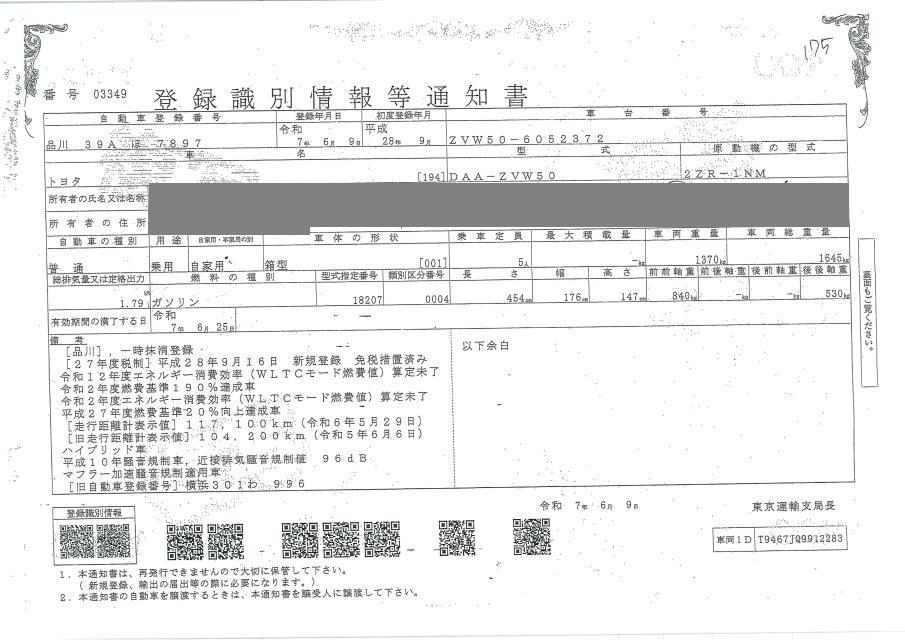 175
番号 03349 登録識別情報等通知書
自動車登録番号 登録年月日 初度登録年月 車台番号
品川 39A ほ 7897 令和 7年 6月 9日 平成 28年 9月 ZVW50-6052372
車名 型式 原動機の型式
トヨタ [194] DAA-ZVW50 2ZR-1NM
所有者の氏名又は名称
所有者の住所
自動車の種別 用途 自家用・事業用の別 車体の形状 乗車定員 最大積載量 車両重量 車両総重量
普通 乗用 自家用 箱型 [001] 5人 -kg 1370kg 1645kg
総排気量又は定格出力 燃料の種別 型式指定番号 類別区分番号 長さ 幅 高さ 前前軸重 前後軸重 後前軸重 後後軸重
1.79 ガソリン 18207 0004 454cm 176cm 147cm 840kg -kg -kg 530kg
有効期間の満了する日 令和 7年 6月 25日
備考
[品川],一時抹消登録
[27年度税制]平成28年9月16日 新規登録 免税措置済み
令和12年度エネルギー消費効率(WLTCモード燃費値)算定未了
令和2年度燃費基準190%達成車
令和2年度エネルギー消費効率(WLTCモード燃費値)算定未了
平成27年度燃費基準20%向上達成車
[走行距離計表示値]117,100km(令和6年5月29日)
[旧走行距離計表示値]104,200km(令和5年6月6日)
ハイブリッド車
平成10年騒音規制車,近接排気騒音規制値 96dB
マフラー加速騒音規制適用車
[旧自動車登録番号]横浜301わ 996
以下余白
裏面もご覧ください。
令和 7年 6月 9日 東京運輸支局長
登録識別情報
車両ID T9467JQ9912283
1.本通知書は、再発行できませんので大切に保管して下さい。
(新規登録、輸出の届出等の際に必要になります。)
2.本通知書の自動車を譲渡するときは、本通知書を譲受人に譲渡して下さい。